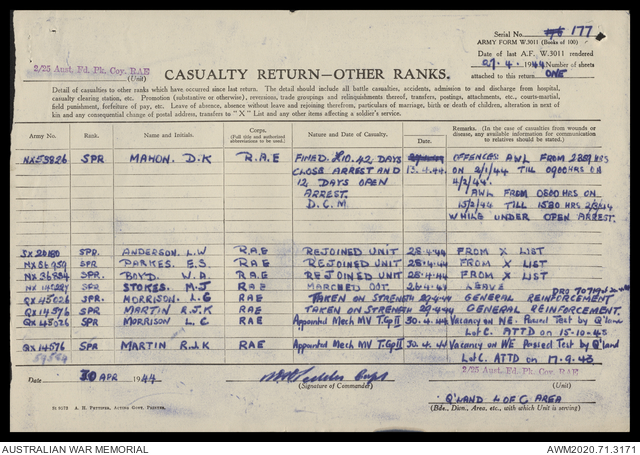 Serial No. 177
ARMY FORM W.3011 (Books of 100)
Date of last A.F. W.3011 rendered
29.4.1944 Number of sheets
attached to this return ONE
2/25 Aust. Fd. Pk. Coy. RAE
(Unit)
CASUALTY RETURN—OTHER RANKS.
Detail of casualties to other ranks which have occurred since last return. The detail should include all battle casualties, accidents, admission to and discharge from hospital,
casualty clearing station, etc. Promotion (substantive or otherwise), reversions, trade groupings and relinquishments thereof, transfers, postings, attachments, etc., courts-martial,
field punishment, forfeiture of pay, etc. Leave of absence, absence without leave and rejoining therefrom, particulars of marriage, birth or death of children, alteration in next of
kin and any consequential change of postal address, transfers to "X" List and any other items affecting a soldier's service.
Army No. Rank. Name and Initials. Corps. (Full title and authorized abbreviations to be used.) Nature and Date of Casualty. Date. Remarks. (In the case of casualties from wounds or disease, any available information for communication to relatives should be stated.)
NX53826 SPR MAHON. D.K R.A.E FINED £10. 42 DAYS OFFENCES: AWL FROM HRS
CLOSE ARREST AND 13.4.44. ON 2/1/44 TILL 0900 HRS ON
12 DAYS OPEN 4/2/44.
ARREST. AWL FROM HRS ON
D.C.M 15/2/44 TILL 1530 HRS 2/3/44
WHILE UNDER OPEN ARREST.
SX20180 SPR. ANDERSON. L.W R.A.E REJOINED UNIT 28.4.44 FROM X LIST
SPR PARKES. E.S R.A.E REJOINED UNIT 28.4.44 FROM X LIST
SPR. BOYD. W.A. R.A.E REJOINED UNIT 28.4.44 FROM X LIST
SPR. STOKES. M.J RAE MARCHED OUT. 26.4.44 LEAVE
QX45026 SPR. MORRISON. L.G RAE TAKEN ON STRENGTH 29.4.44 GENERAL REINFORCEMENT
QX14576 SPR MARTIN R.J.K RAE TAKEN ON STRENGTH 29.4.44 GENERAL REINFORCEMENT.
QX45026 SPR MORRISON L.C RAE Appointed Mech MV T.Gp II 30.4.44 Vacancy on WE. Passed Test by Q'land
L of C. ATTD on 15-10.43
QX14576 SPR MARTIN R.J.K RAE Appointed Mech MV T.Gp II 30.4.44 Vacancy on WE Passed Test by Q'land
L of C. ATTD on 17.9.43
Date 30 APR 1944
(Signature of Commander)
2/25 Aust. Fd. Pk. Coy. RAE
(Unit)
Q'LAND L OF C AREA
(Bde., Divn., Area, etc., with which Unit is serving)
A. H. PETTIFER, ACTING GOVT. PRINTER.
AUSTRALIAN WAR MEMORIAL
AWM2020.71.3171